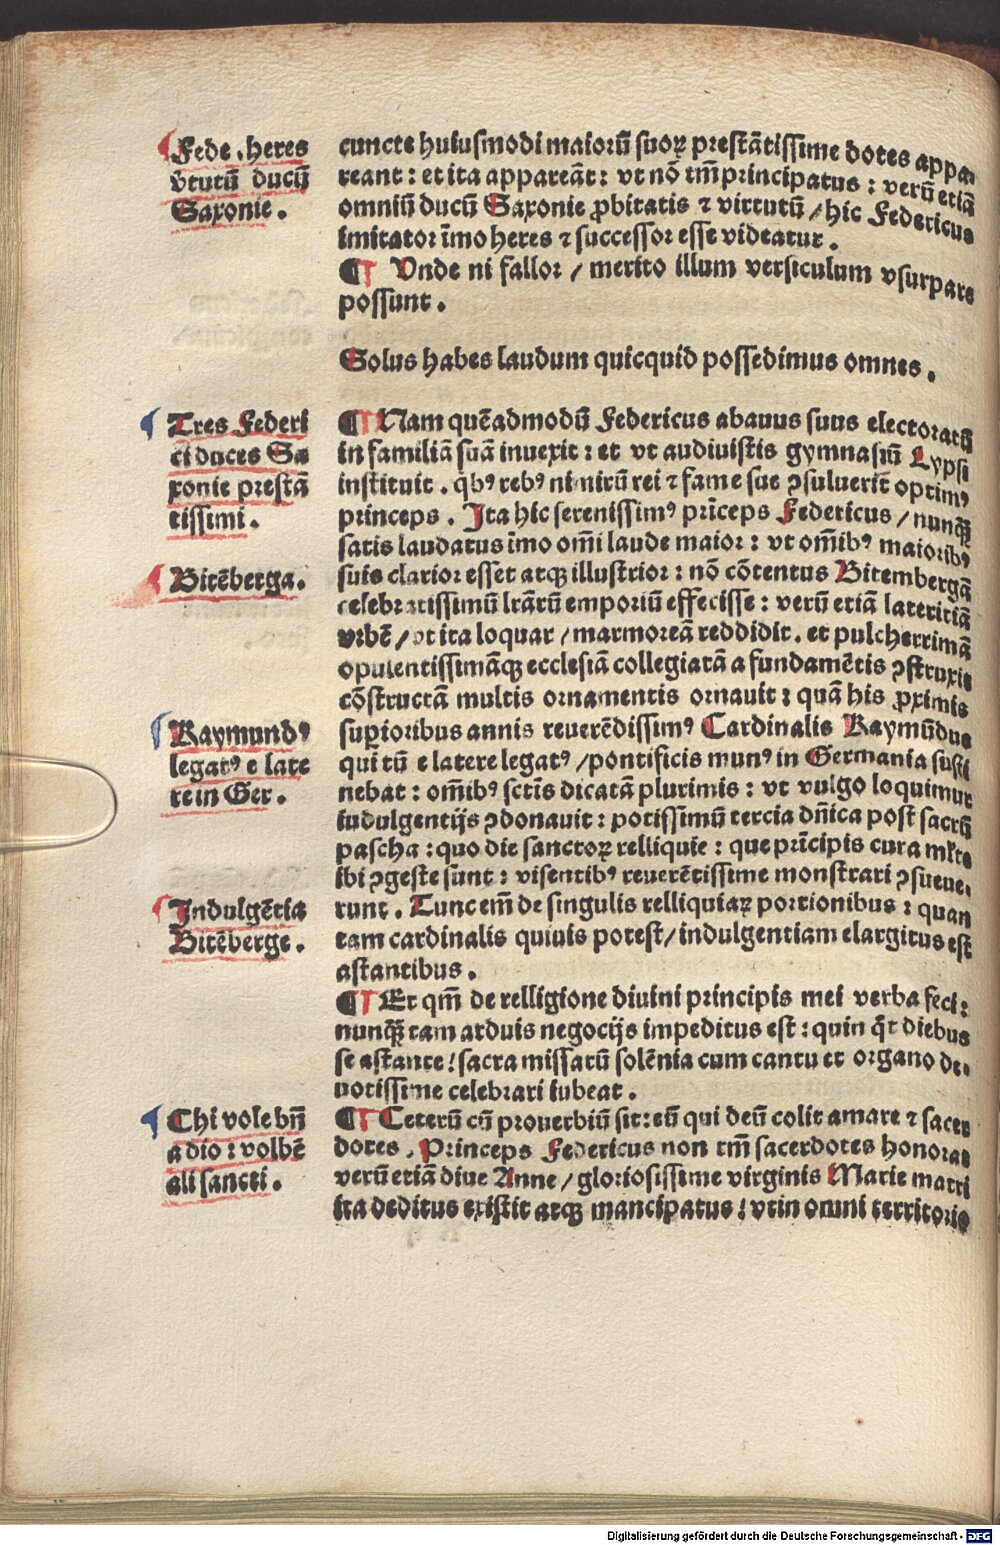 Fede . heres
v̄tutū ducū
Saxonie .
cuncte huiusmodi maiorū suoꝝ prestātissime dotes appa
reant : et ita appareāt : vt nō tm̄ principatus : verū etiā
omniū ducū Saxonie ꝓbitatis ⁊ virtutū / hic Federicus
imitator īmo heres ⁊ successor esse videatur .
¶ Vnde ni fallor / merito illum versiculum vsurpare
possunt .
Solus habes laudum quicquid possedimus omnes .
Tres Federi
ci duces Sa
xonie prestā
tissimi .
¶ Nam quēadmodū Federicus abauus suus electoratū
in familiā suā inuexit : et vt audiuistis gymnasiū Lypsi
instituit . qb᾿ reb᾿ nimirū rei ⁊ fame sue ꝯsuluerit optim᾿
princeps . Ita hic serenissim᾿ prīceps Federicus / nunqꝫ̄
satis laudatus īmo om̄i laude maior : vt om̄ib᾿ maiorib᾿
Bitēberga .
suis clarior esset atqꝫ illustrior : nō cōtentus Bitembergā
celebratissimū lr̄arū emporiū effecisse : verū etiā lateritiā
vrbē / vt ita loquar / marmoreā reddidit . et pulcherrimā
opulentissimāqꝫ ecclesiā collegiatā a fundamētis ꝯstruxit
cōstructā multis ornamentis ornauit : quā his ꝓximis
Raymund᾿
legat᾿ e late
re in Ger .
supioribus annis reuerēdissim᾿ Cardinalis Raymūdus
qui tū e latere legat᾿ / pontificis mun᾿ in Germania susti
nebat : om̄ib᾿ sctīs dicatā plurimis : vt vulgo loquimur
indulgentijs ꝯdonauit : potissimū tercia dn̄ica post sacrū
pascha : quo die sanctoꝝ relliquie : que prīcipis cura ml̄te
ibi ꝯgeste sunt : visentib᾿ reuerētissime monstrari ꝯsueue,
Indulgētia
Bitēberge .
runt . Tunc em̄ de singulis relliquiaꝝ portionibus : quan
tam cardinalis quiuis potest / indulgentiam elargitus est
astantibus .
¶ Et qm̄ de relligione diuini principis mei verba feci :
nunqꝫ̄ tam arduis negocijs impeditus est : quin q̄t diebus
se astante / sacra missarū solēnia cum cantu et organo de,
uotissime celebrari iubeat .
Chi vole bn̄
a dio : vol bē
ali sancti .
¶ Ceterū cū prouerbiū sit : eū qui deū colit amare ⁊ sacer
dotes . Princeps Federicus non tm̄ sacerdotes honorat
verū etiā diue Anne / gloriosissime virginis Marie matri
ita deditus existit atqꝫ mancipatus / vt in omni territorio
Digitalisierung gefördert durch die Deutsche Forschungsgemeinschaft - DFG